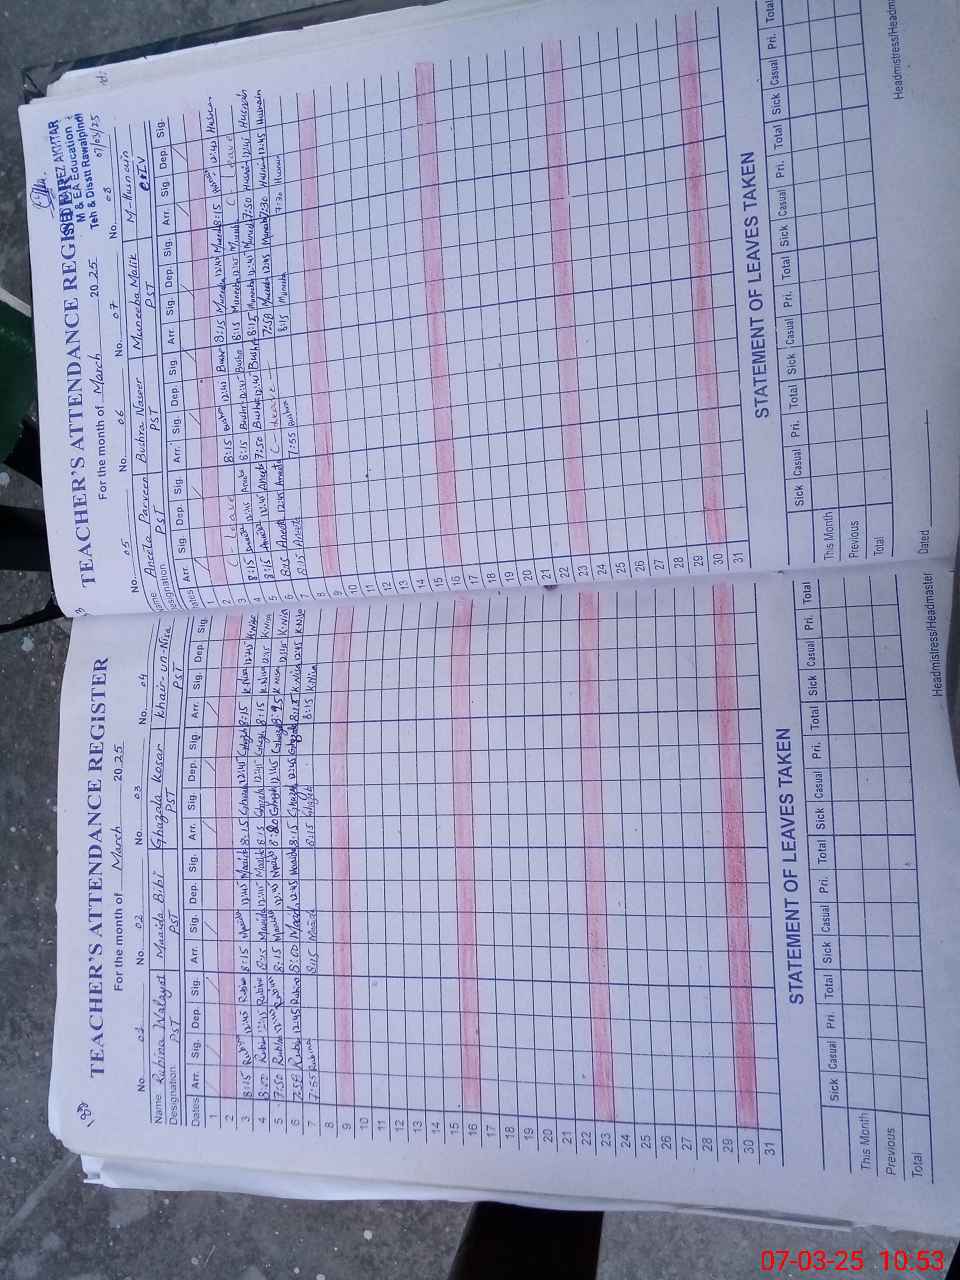 TEACHER'S ATTENDANCE REGISTER
For the month of March 2025
No. 01 No. 02 No. 03 No. 04
Name Rubina Walayat Maaida Bibi Ghazala Kosar Khair-un-Nisa
Designation PST PST PST PST
Dates Arr. Sig. Dep. Sig. Arr. Sig. Dep. Sig. Arr. Sig. Dep. Sig. Arr. Sig. Dep. Sig.
1
2
3 8:15 Rubina 12:45 Rubina 8:15 Maaida 12:45 Maaida 8:15 12:45 8:15 K.Nisa 12:45 K.Nisa
4 8:00 Rubina 12:45 Rubina 8:15 Maaida 12:45 Maaida 8:15 12:45 8:15 K.Nisa K.Nisa
5 7:50 Rubina 12:45 Rubina 8:15 Maaida 12:45 8:20 12:45 K.Nisa K.Nisa
6 7:50 Rubina 12:45 Rubina 8:00 Maaida 12:45 Maaida 8:15 12:45 8:15 K.Nisa 12:45 K.Nisa
7 7:55 Rubina 8:15 Maaida 8:15 8:15 K.Nisa
8
9
10
11
12
13
14
15
16
17
18
19
20
21
22
23
24
25
26
27
28
29
30
31
STATEMENT OF LEAVES TAKEN
Sick Casual Pri. Total Sick Casual Pri. Total Sick Casual Pri. Total Sick Casual Pri. Total
This Month
Previous
Total
Headmistress/Headmaster
TEACHER'S ATTENDANCE REGISTER
M & EA Education
Teh & Distt Rawalpindi
07/03/25
For the month of March 2025
No. 05 No. 06 No. 07 No. 08
Name Aneeta Parveen Bushra Naseer Muneeba Malik M-Husnain
Designation PST PST PST C-IV
Dates Arr. Sig. Dep. Sig. Arr. Sig. Dep. Sig. Arr. Sig. Dep. Sig. Arr. Sig. Dep. Sig.
2
3 C - Leave 8:15 Bushra 12:45 Bushra 8:15 Muneeba 12:45 Muneeba 8:15 Husnain 12:40 Husnain
4 8:15 Aneeta 12:45 Aneeta 8:15 Bushra 12:45 Bushra 8:15 Muneeba 12:45 Muneeba C - Leave
5 8:15 Aneeta 12:45 Aneeta 7:50 Bushra 12:45 Bushra 8:15 Muneeba 12:45 Muneeba 7:50 Husnain 12:45 Husnain
6 8:15 Aneeta 12:45 Aneeta C - Leave 7:50 Muneeba 12:45 Muneeba 7:30 Husnain 12:45 Husnain
7 8:15 Aneeta 7:55 Bushra 8:15 Muneeba 7:30 Husnain
8
9
10
11
12
13
14
15
16
17
18
19
20
21
22
23
24
25
26
27
28
29
30
31
STATEMENT OF LEAVES TAKEN
Sick Casual Pri. Total Sick Casual Pri. Total Sick Casual Pri. Total Sick Casual Pri. Total
This Month
Previous
Total
Dated
07-03-25 10:53